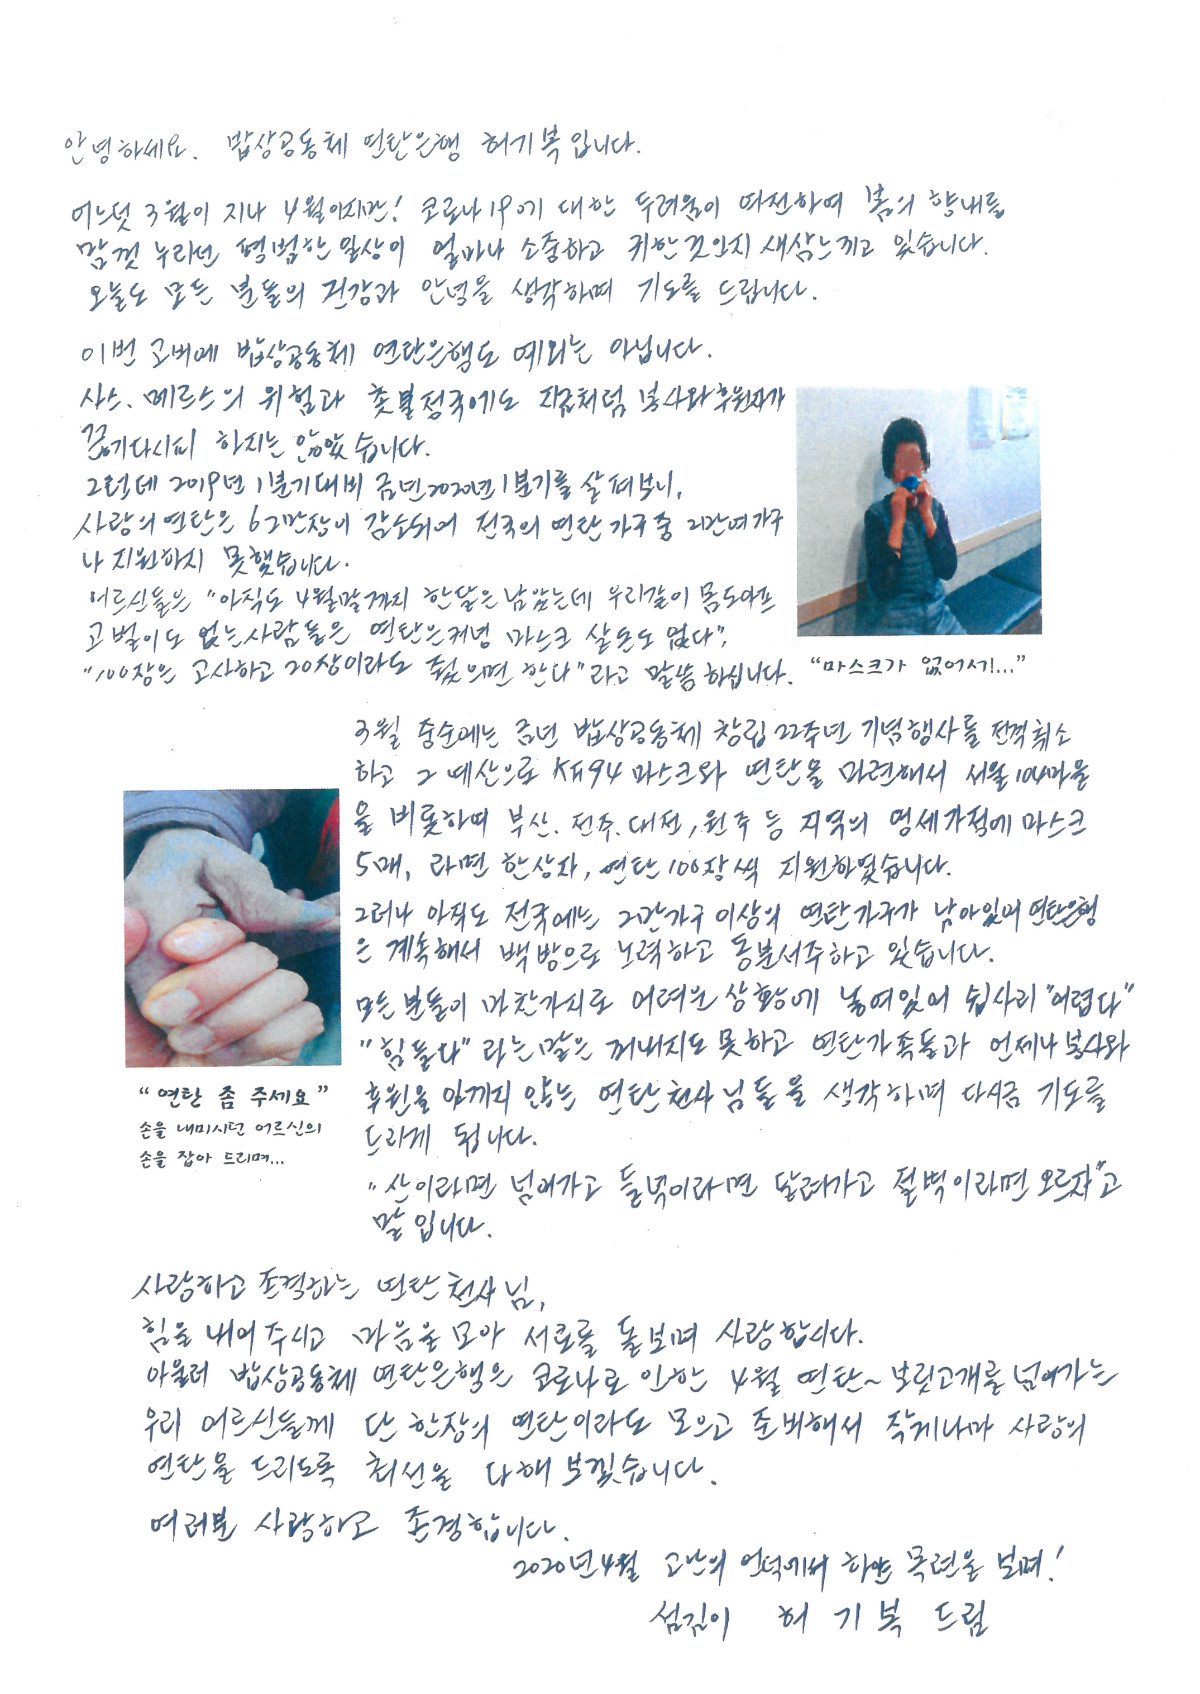 안녕하세요. 밥상공동체 연탄은행 허기복입니다.
어느덧 3월이 지나 4월이지만! 코로나19에 대한 두려움이 여전하며 봄의 향내를
맘껏 누리던 평범한 일상이 얼마나 소중하고 귀한것인지 새삼느끼고 있습니다.
오늘도 모든 분들의 건강과 안녕을 생각하며 기도를 드립니다.
이번 고비에 밥상공동체 연탄은행도 예외는 아닙니다.
사스. 메르스의 위험과 촛불정국에도 지금처럼 봉사와 후원자가
끊기다시피 하지는 않았습니다.
그런데 2019년 1분기대비 금년2020년 1분기를 살펴보니,
사랑의 연탄은 62만장이 감소되어 전국의 연탄가구중 2만여가구
나 지원하지 못했습니다.
어르신들은 "아직도 4월말까지 한달은 남았는데 우리같이 몸도아프
고 벌이도 없는사람들은 연탄은커녕 마스크 살돈도 없다",
"100장은 고사하고 20장이라도 줬으면 한다"라고 말씀하십니다.
"마스크가 없어서!..."
3월 중순에는 금년 밥상공동체 창립22주년 기념행사를 전격취소
하고 그 예산으로 KF94 마스크와 연탄을 마련해서 서울104마을
을 비롯하여 부산. 전주. 대전, 원주 등 지역의 영세가정에 마스크
5매, 라면 한상자, 연탄 100장씩 지원하였습니다.
그러나 아직도 전국에는 2만가구 이상의 연탄가구가 남아있어 연탄은행
은 계속해서 백방으로 노력하고 동분서주하고 있습니다.
모든 분들이 마찬가지로 어려운 상황에 놓여있어 쉽사리 "어렵다"
"힘들다"라는 말은 꺼내지도 못하고 연탄가족들과 언제나 봉사와
후원을 아끼지 않는 연탄천사님들을 생각하며 다시금 기도를
드리게 됩니다.
"산이라면 넘어가고 들녘이라면 달려가고 절벽이라면 오르자"고
말입니다.
"연탄 좀 주세요"
손을 내미시던 어르신의
손을 잡아 드리며...
사랑하고 존경하는 연탄천사님,
힘을 내어주시고 마음을 모아 서로를 돌보며 사랑합시다.
아울러 밥상공동체 연탄은행은 코로나로 인한 4월 연탄~보릿고개를 넘어가는
우리 어르신들께 단 한장의 연탄이라도 모으고 준비해서 작게나마 사랑의
연탄을 드리도록 최선을 다해보겠습니다.
여러분 사랑하고 존경합니다.
2020년4월 고난의 언덕에서 하얀 목련을 보며!
섬김이 허기복 드림